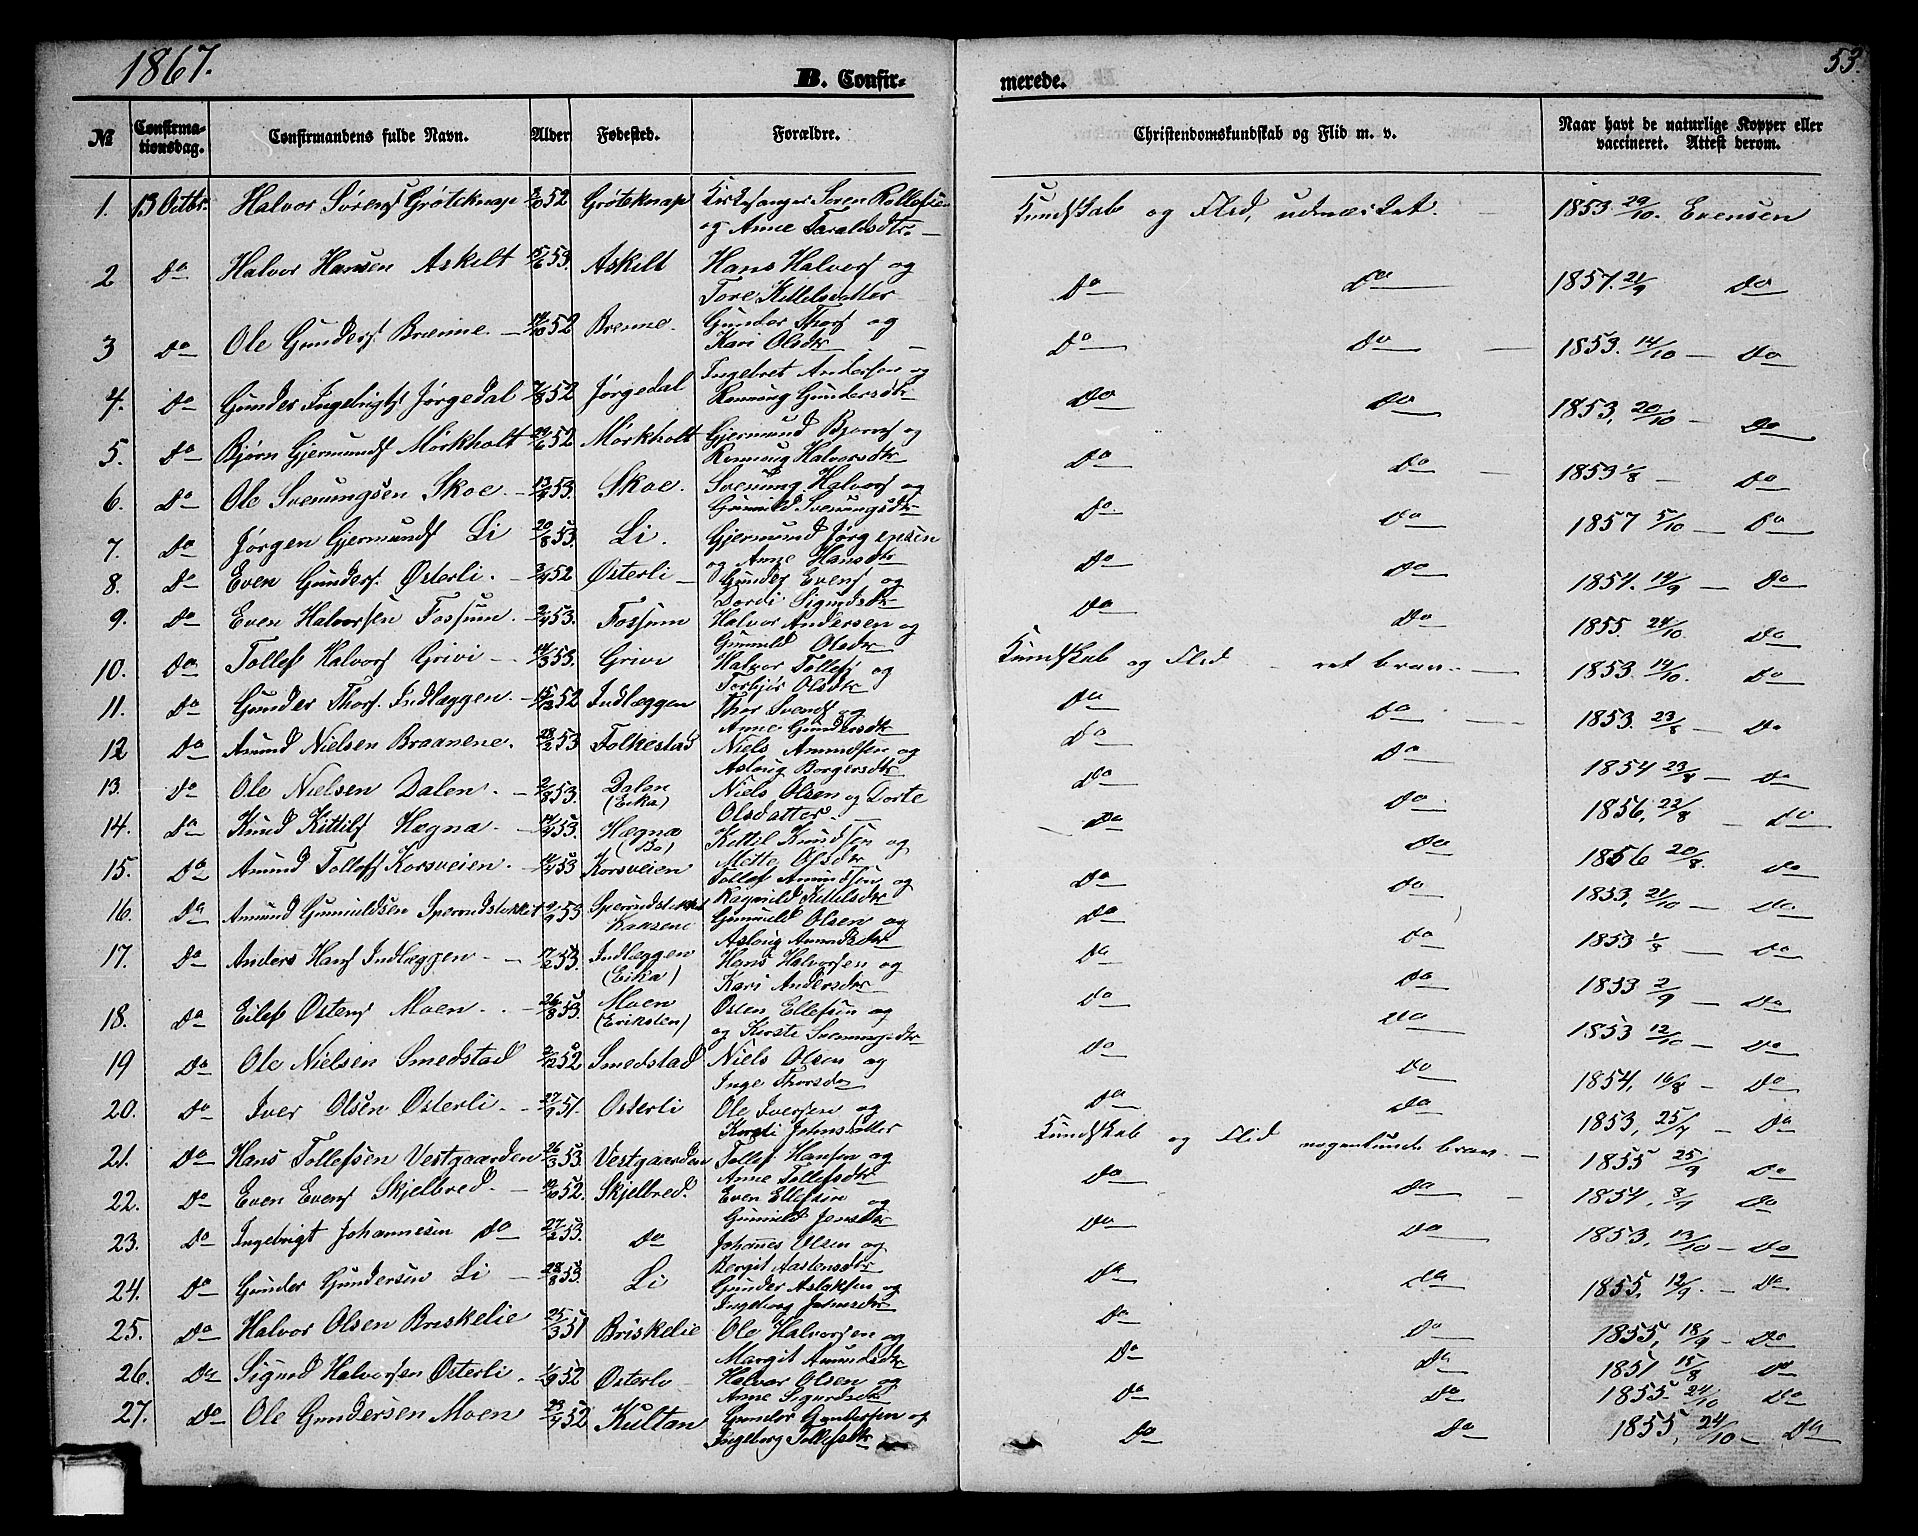 1867.
53.
B. Confir-
merede.
№ Confirma-tionsdag. Confirmandens fulde Navn. Alder Fødested. Forældre. Christendomskundskab og Flid m. v. Naar havt de naturlige Kopper eller vaccineret. Attest derom.
1. 13 Octbr. Halvor Sørens Grøteknap 52 Grøteknap Kirkesanger Søren Rollefsen og Anne Taraldsdtr. Kundskab og Flid, udmærket. 1853 29/10. Evensen
2 Do Halvor Hansen Askilt 53. Askilt Hans Halvors og Tore Kittelsdatter Do Do 1857. 21/9 Do
3 Do Ole Gunders Brenne 52 Brenne. Gunder Thors og Kari Olsdtr Do Do 1853. 14/10 Do
4. Do Gunder Ingebrigts Jørgedal 52 Jørgedal Ingebret Andersen og Rennung Gundersdtr Do Do 1853, 20/10 Do
5. Do Bjørn Gjermunds Mørkholt 52 Mørkholt Gjermund Bjørns og Rennung Halvorsdtr Do Do 1853 1/8 Do
6. Do Ole Svenungsen Skoe. 53. Skoe. Svenung Halvors og Gunnild Svenungsdtr Do Do 1857 5/10 Do
7. Do Jørgen Gjermunds Li 20/8 53. Li. Gjermund Jørgensen og Anne Hansdtr Do Do 1854. 14/9 Do
8. Do Even Gunders. Østerli. 52 Østerli Gunder Evens og Dordi Sigurdsdtr Do Do 1855. 24/10. Do
9. Do Even Halvorsen Fossum. 53. Fossum Halvor Andersen og Gunnild Olsdtr Kundskab og Flid ret brav. 1853. 14/10. Do
10. Do Tollef Halvors Grivi 53. Grivi Halvor Tollefs og Torbjør Olsdtr Do Do 1853. 23/8 Do
11. Do Gunder Thors. Indlæggen. 15/12 52 Indlæggen Thor Svends og Anne Gundersdtr Do Do 1854 23/8 Do
12 Do Amund Nielsen Braanene. 28/2 53 Folkestad Niels Amundsen og Aslaug Borgersdtr Do Do 1856, 22/8 Do
13. Do Ole Nielsen Dalen. 53. Dalen (Eika) Niels Olsen og Dorte Olsdatter Do Do 1856 20/8. Do
14. Do Knud Kittils Hegna. 53. Hægna (Bø) Kittil Knudsen og Mette Olsdtr Do Do 1853, 21/10 Do
15. Do Amund Tollefs Korsveien. 53 Korsveien Tollef Amundsen og Ragnild Kittilsdtr Do Do 1853 1/8 Do
16. Do Amund Gunnuldsen Sperundstokket 53 Sperundstokket Kaasene Gunnuld Olsen og Aslaug Amundsdtr Do Do 1853 2/9 Do
17. Do Anders Hans Indlæggen. 53. Indlæggen (Eika) Hans Halvorsen og Kari Andersdtr Do Do 1853 12/10 Do
18. Do Eilef Østens Moen. 26/8 53. Moen (Eriksten) Osten Ellefsen og og Kirste Svenungsdtr Do Do 1854, 16/8 Do
19 Do Ole Nielsen Smedstad 52 Smedstad Niels Olsen og Inge Thorsdtr Do Do 1853, 25/7 Do
20. Do Iver Olsen Østerli. 27/9 51. Østerli Ole Iversen og Kirsti Johnsdatter Kundskab og Flid nogenlunde brav. 1855 25/9 Do
21. Do Hans Tollefsen Vestgaarden 26/3 53 Vestgaarden Tollef Hansen og Anne Tollefsdtr Do Do 1854, 8/9 Do
22. Do Even Evens Skjelbred. 52. Skjelbred. Even Ellefsen og Gunnild Jensdtr Do Do 1853, 13/10 Do
23. Do Ingebrigt Johannesen Do 27/2 53. Do Johanes Olsen og Bergit Aastensdtr Do Do 1855, 12/9. Do
24. Do Gunder Gundersen Li 28/8 53. Li Gunder Aslaksen og Ingeborg Johnsdtr Do Do 1855, 18/9 Do
25. Do Halvor Olsen Briskelie 25/3 51 Briskelie Ole Halvorsen og Margit Amundsdtr Do Do 1851 15/8 Do
26. Do Sigurd Halvorsen Østerli. 1/9 52 Østerli Halvor Olsen og Anne Sigurdsdtr Do Do 1855. 24/10 Do
27. Do Ole Gundersen Moen 52 Kultan Gunder Gundersen og Ingeborg Tollefsdtr Do Do 1855, 24/10 Do